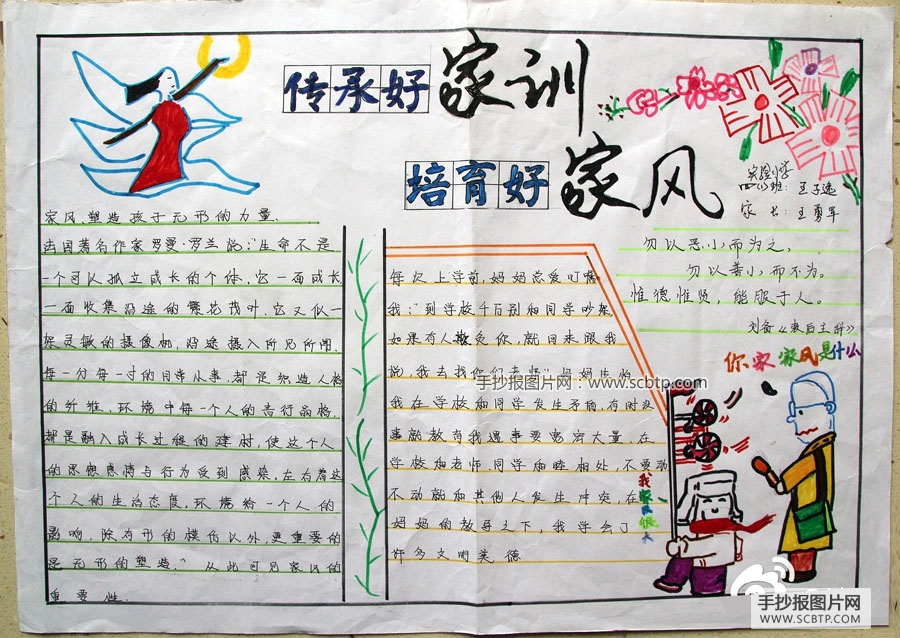 传承好家训
培育好家风
实验小学
四(3)班：王子逸
家长：王勇军
家风,塑造孩子无形的力量.
法国著名作家罗曼·罗兰说:"生命不是
一个可以孤立成长的个体,它一面成长
一面收集沿途的繁花茂叶.它又似一
架灵敏的摄像机,沿途摄入所见所闻.
每一分每一寸的日常小事,都是织造人格
的纤维.环境中每一个人的言行品格,
都是融入成长过程的建材,使这个人
的思想感情与行为受到感染,左右着这
个人的生活态度.环境给一个人的
影响,除有形的模仿以外,更重要的
是无形的塑造."从此可见家风的
重要性.
每次上学前,妈妈总爱叮嘱
我:"到学校千万别和同学吵架
如果有人欺负你,就回来跟我
说,我去找你们老师"妈妈生怕
我在学校和同学发生矛盾,有时还
事就教育我遇事要宽宏大量,在
学校和老师.同学和睦相处,不要动
不动就和其他人发生冲突,在
妈妈的教导之下,我学会了
许多文明美德
勿以恶小而为之,
勿以善小而不为。
惟德惟贤,能服于人。
刘备《敕后主辞》
你家家风是什么
我家很大
手抄报图片网：www.scbtp.com
手抄报图片网
WWW.SCBTP.COM